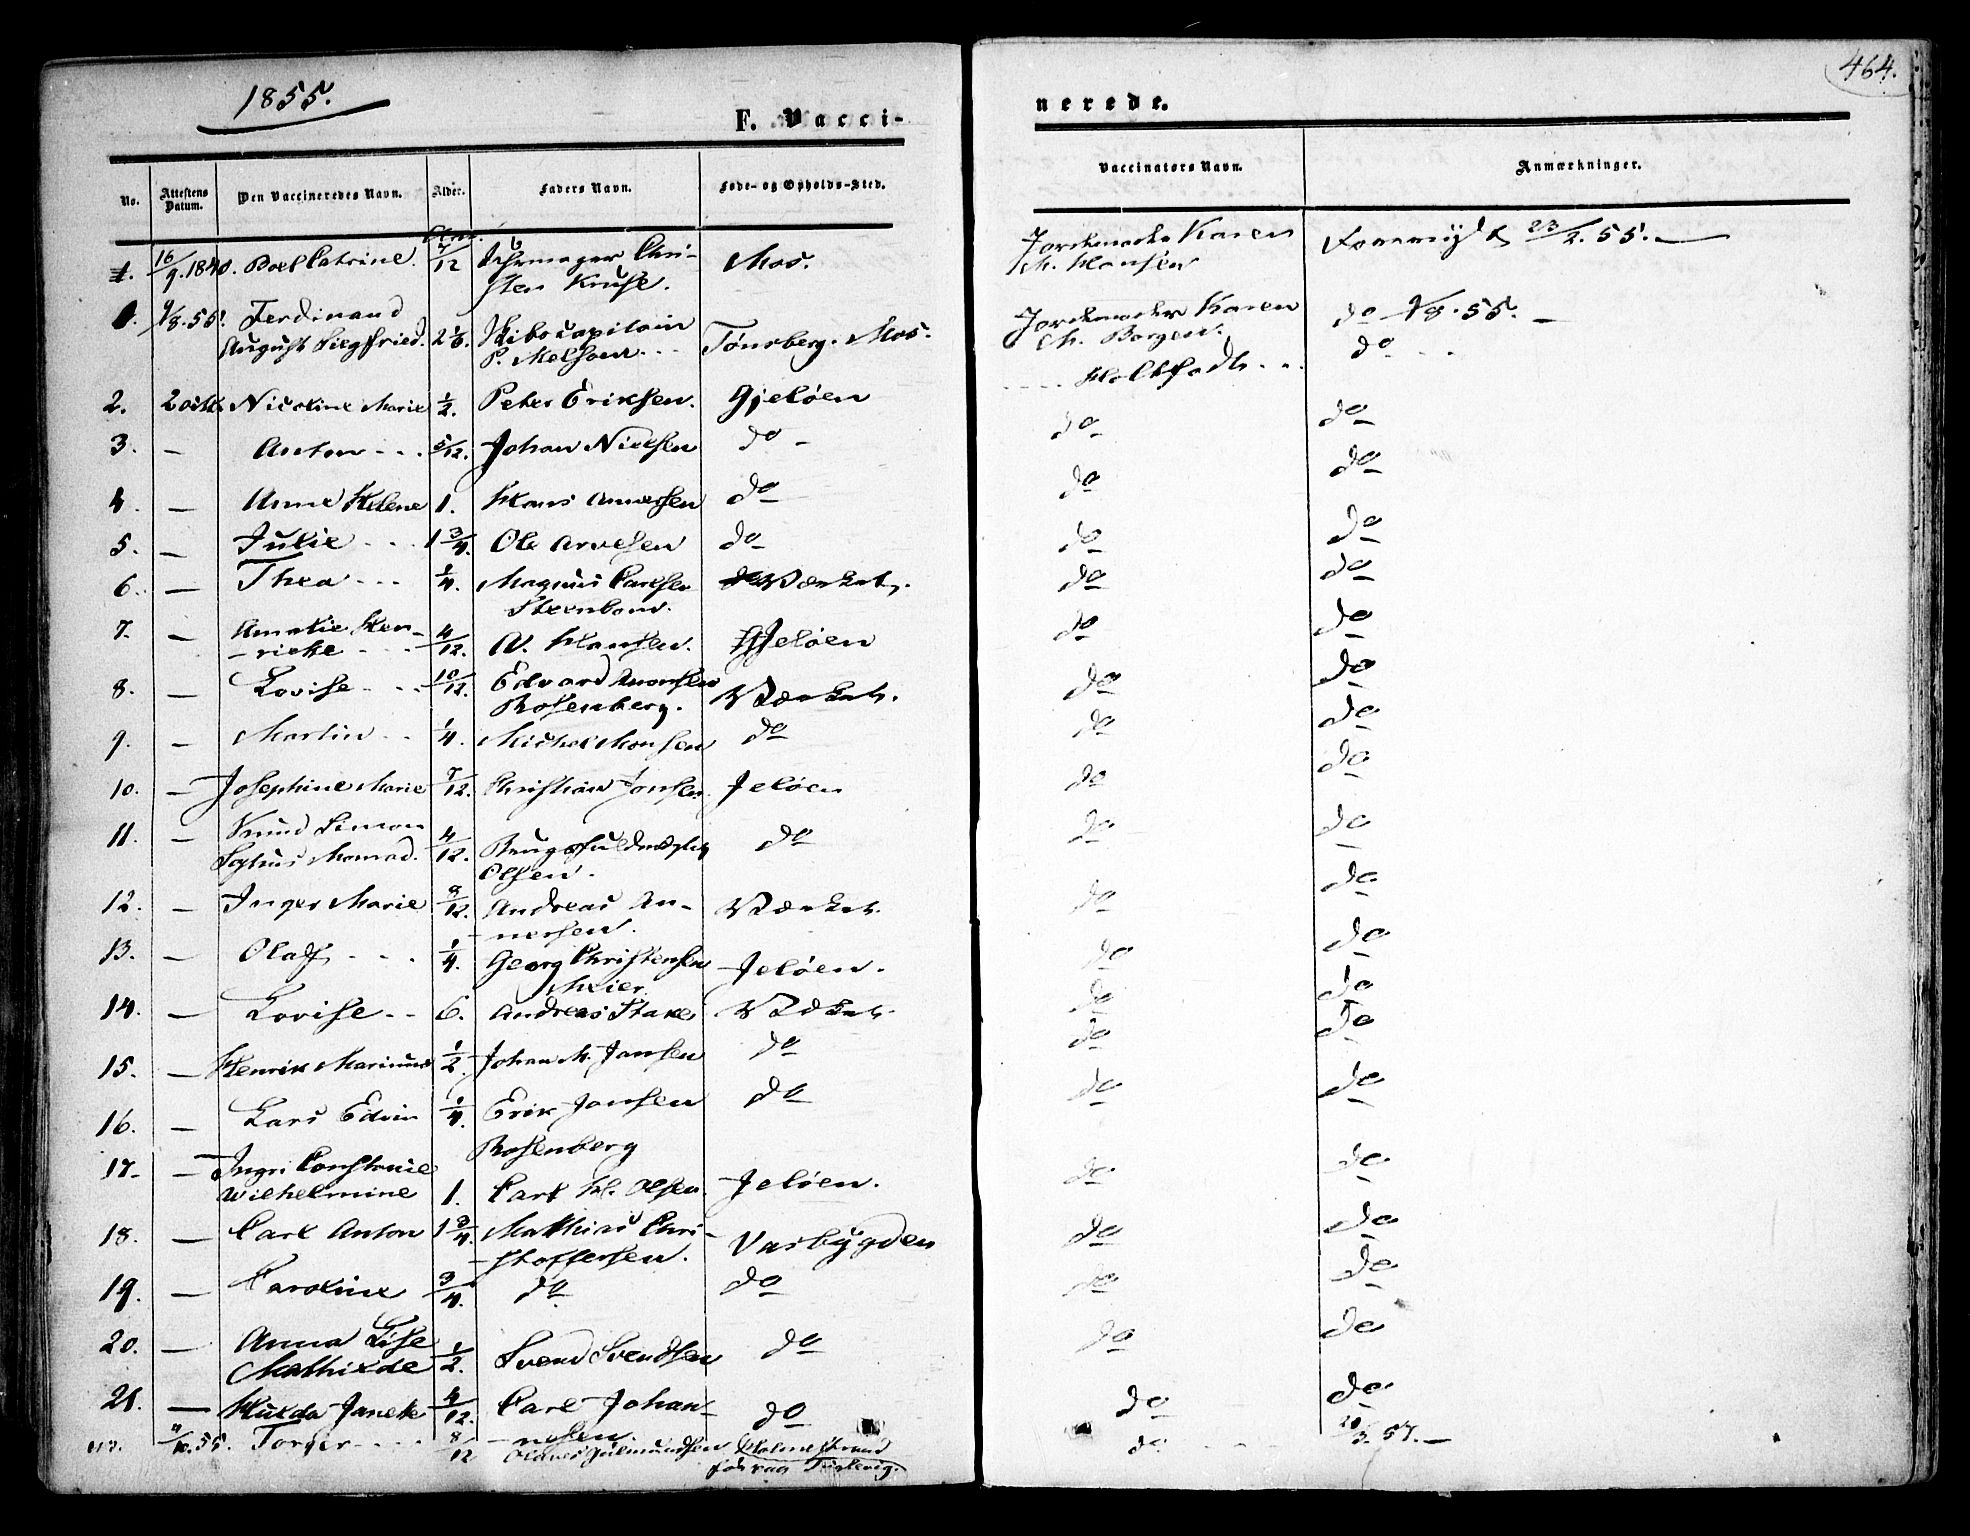 1855.
464.
F. Vacci-
nerede.
No.
Attestens Datum.
Den Vaccineredes Navn.
Alder.
Faders Navn.
Føde- og Opholds-Sted.
Vaccinators Navn.
Anmærkninger.
16/9. 1840. Boel Catrine. 7/12 Chri-
sten Kruse. Mos.
Jordemoder Karen
M. Hansen 23/2. 55.
1. 9/8. 55. Ferdinand
August Siegfried. Skibscapitain
P. Melsom Tønsberg. Mos.
Jordemoder Karen
M. Borgen. do 9/8. 55.
2. Nicoline Marie 1/2. Peter Eriksen. Gjeløen do
3. — Anton 5/12. Johan Nielsen do - do do
4. — Anne Helene 1. Hans Andersen do do do
5. — Julie 1 3/4. Ole Arvesen do do do
6. — Thea 1/4. Magnus Carlsen
Steenbom. Værket. do do
7. — Amalie Hen-
-riette 4/12. A. Hansen. Jeløen do do
8. — Lovise 10/12. Edvard Monsen
Rosenberg. Værket. do do
9. — Martin 1/4. Michel Monsen do do do
10. — Josephine Marie 7/12. Christian Jonsen. Jeløen do do
11. — Knud Simon
Sophus Monrad. 4/12.
Olsen. do do do
12. — Inger Marie 9/12. Andreas An-
-nersen. Værket. do do
13. — Olaf 1/4. Georg Christensen
Meier. Jeløen. do do
14. — Lovise 6. Andreas Stake Værket. do do
15. — Henrik Marinus 1/2. Johan M. Jansen do do do
16. — Lars Edvin 1/4. Erik Jansen
Rosenberg do do do
17. — Ingri Constanse
Wilhelmine 1. Carl H. Olsen. Jeløen. do do
18. — Carl Anton 1 3/4. Mathias Chri-
-stoffersen. Vasbygden do do
19. — Caroline 3/4. do do do do
20. — Anna Lise
Mathilde 1/2. Svend Svendsen do do do
21. — Hulda Janette 4/12. Carl Johan-
-nesen. do do do
55. Torger 8/12 Gulmundsen Holmestrand
do 57.